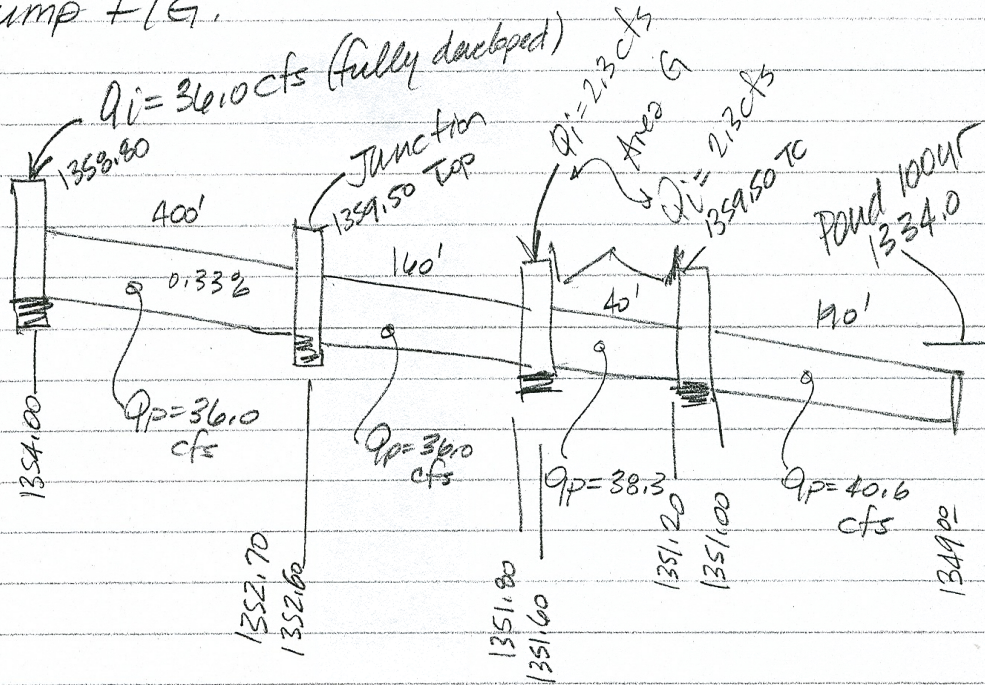 ump F/G.
Qi=36.0 cfs (fully developed)
1358.80
Junction
1359.50 Top
Qi=2.3 cfs
Area G
Qi=2.3 cfs
1359.50 TC
Pond 100yr
1334.0
400'
0.33%
160'
40'
190'
Qp=36.0
cfs
Qp=36.0
cfs
Qp=38.3
Qp=40.6
cfs
1354.00
1352.70
1352.60
1351.80
1351.60
1351.20
1351.00
1349.00